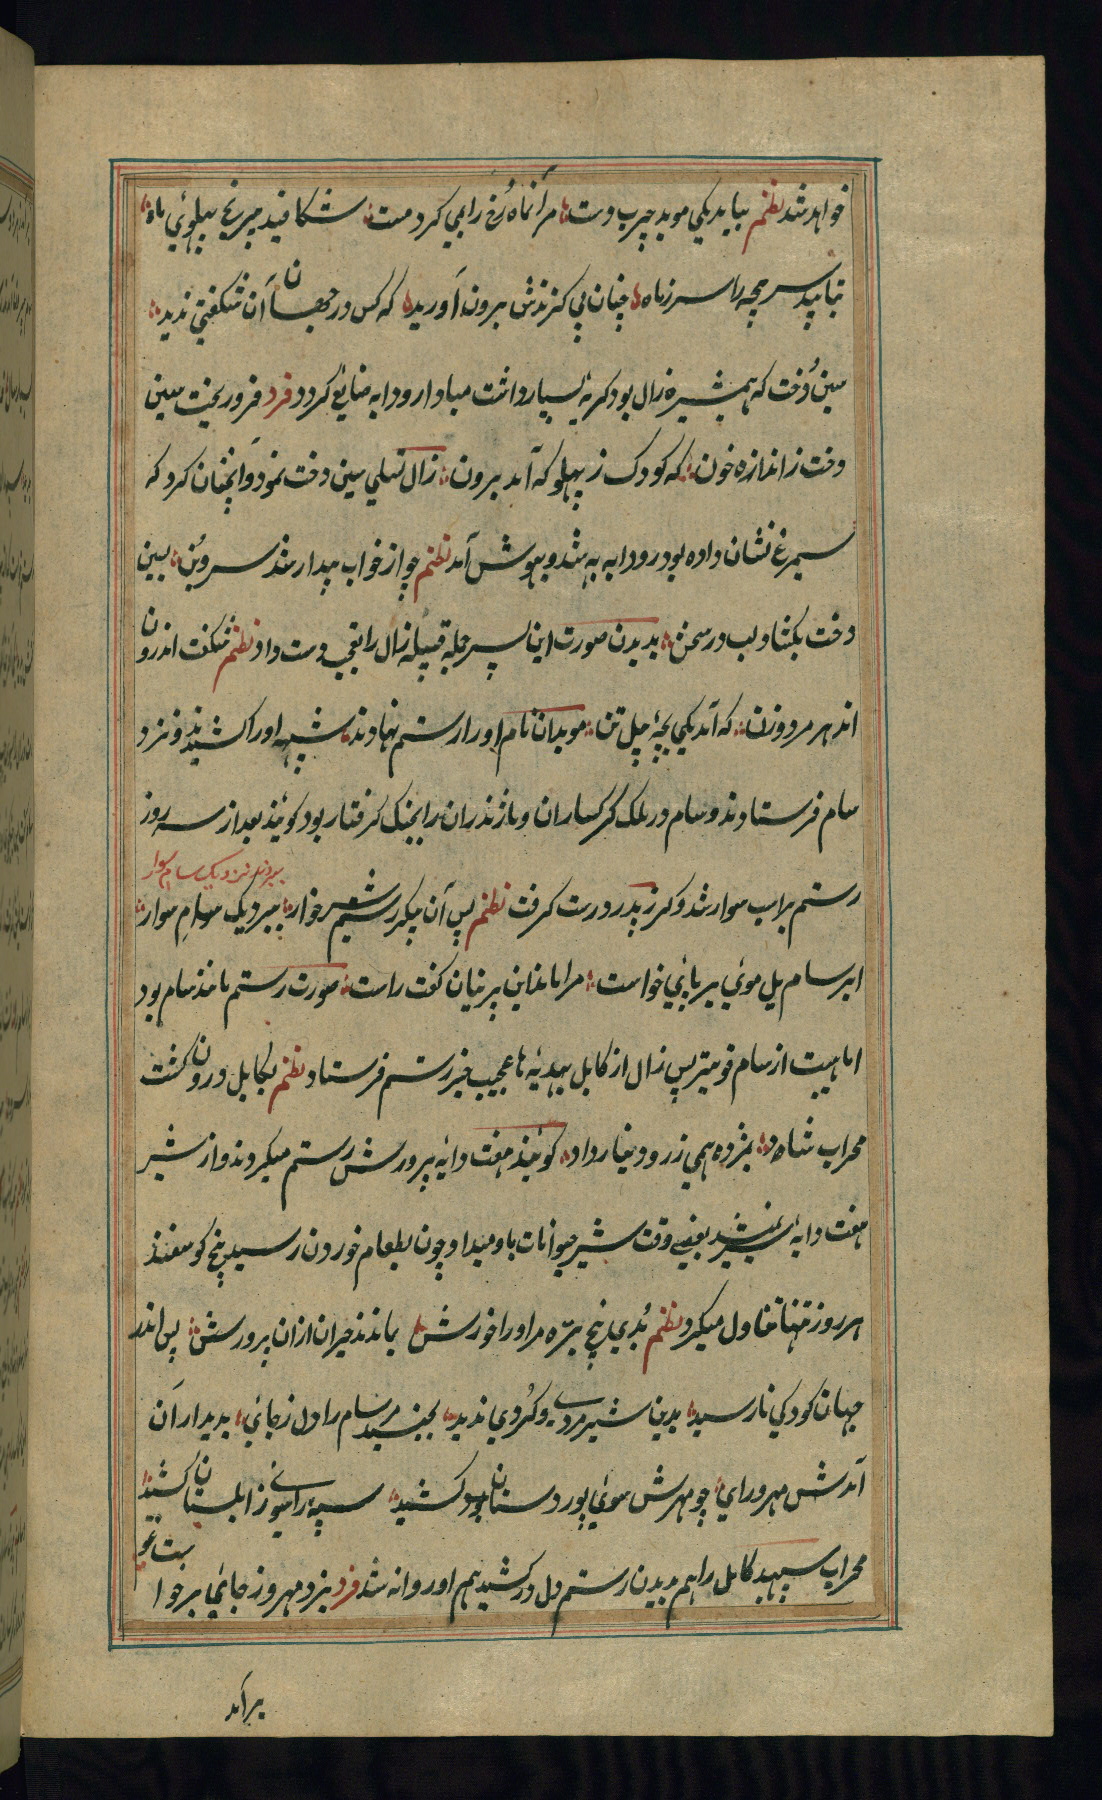 خواهد شد نظم بیامد یکی موبد چرب دست مر آنماه رُخ را بمی کرد مست شکافید بیرنج پهلوی ماه
بتابید سر بچه را سر ز راه چنان بی گزندش برون آورید که کس در جهان آن شگفتی ندید
سین دُخت که همشیره زال بود گریه بسیار داشت مبادا رودابه ضایع گردد فرد فرو ریخت سین
دخت ز اندازه خون که کودک ز پهلو که آمد برون زال تسلی سین دخت نمود و آنچنان کرد که
سیمرغ نشان داده بود رودابه به شد و بهوش آمد نظم چو از خواب بیدار شد سرو بن بسین
دخت بکشاد لب در سخن بدیدن صورت این پسر جمله قبیله زال را تعجبی دست داد نظم شگفت اندرون
اند هر مرد و زن که آمد یکی بچهٔ پیل تن موبدان نام او را رستم نهادند شبیه او را کشیدند و نزد
سام فرستادند و سام در ملک گرگساران و مازندران را بجنگ گرفتار بود گویند بعد از سه روز
ببردند نزدیک سام سوار
رستم بر اسب سوار شد و گرز پدر در دست گرفت نظم پس آن پیکر رستم شیر خوار ببردیک سوام سوار
ابر سام یل موی بر پای خواست مرا ماند این پرنیان گفت راست صورت رستم مانند سام بود
اما هیبت از سام قویتر پس زال از کابل بهدیه ها عجیب خبر رستم فرستاد نظم بکابل درون گشت
محراب شاد بمژده همی زر و دینار داد گویند هفت دایه پرورش رستم میکردند و از شیر
هفت دایه سیر نمیشد بعضی وقت شیر حیوانات باو میداد چون بطعام خوردن رسید پنج گوسفند
هر روز تنها تناول میکرد نظم بُدی پنج برّه مر او را خورش بماندند حیران ازان پرورش پس اندر
جهان کودکی نارسید بدین شیر مردی و گُردی ندید بجنبید مر سام را دل ز جای بدیدار آن
آمدش مهر و رای چو مهرش سوی پور دستان کشید سپه را سوی زابلستان کشید
محراب سپهبد کابل را هم بدیدن رستم دل در کشید هم او روانه شد فرد بزد مهره ز جای برخوا
برآمد